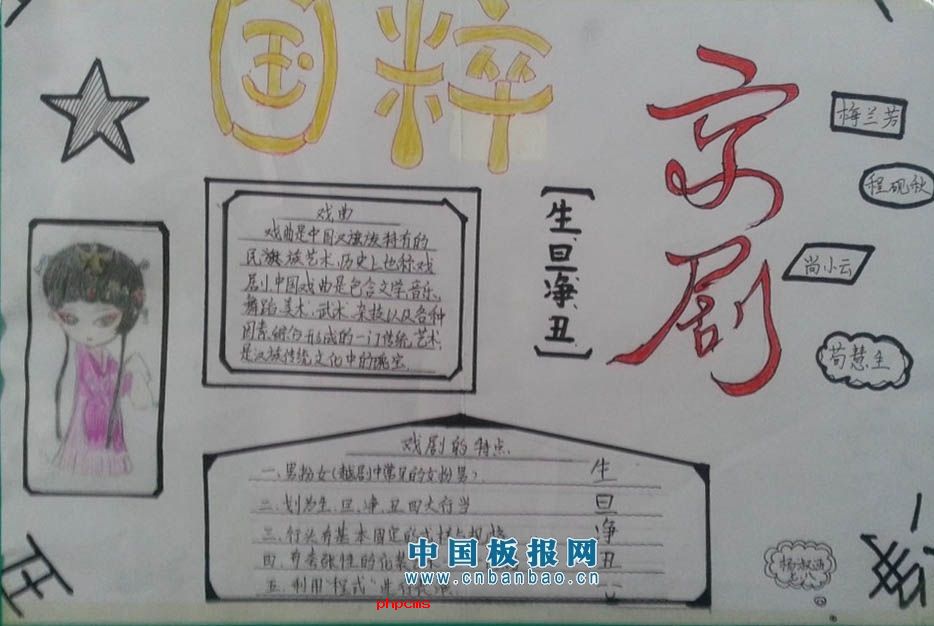 国粹
京剧
梅兰芳
程砚秋
尚小云
荀慧生
[生、旦、净、丑]
戏曲
戏曲是中国汉族族特有的
民族族艺术,历史上也称戏
剧,中国戏曲是包含文学、音乐、
舞蹈、美术、武术、杂技以及各种
因素综合形成的一门传统艺术,
是汉族传统文化中的瑰宝
戏剧的特点
一、男扮女(越剧中常见的女扮男)
二、划为生、旦、净、丑四大行当
三、行头有基本固定的
四、有夸张性的化装艺术
五、利用“程式”进行表演
生
旦
净
丑
中国板报网
www.cnbanbao.cn
phpcms